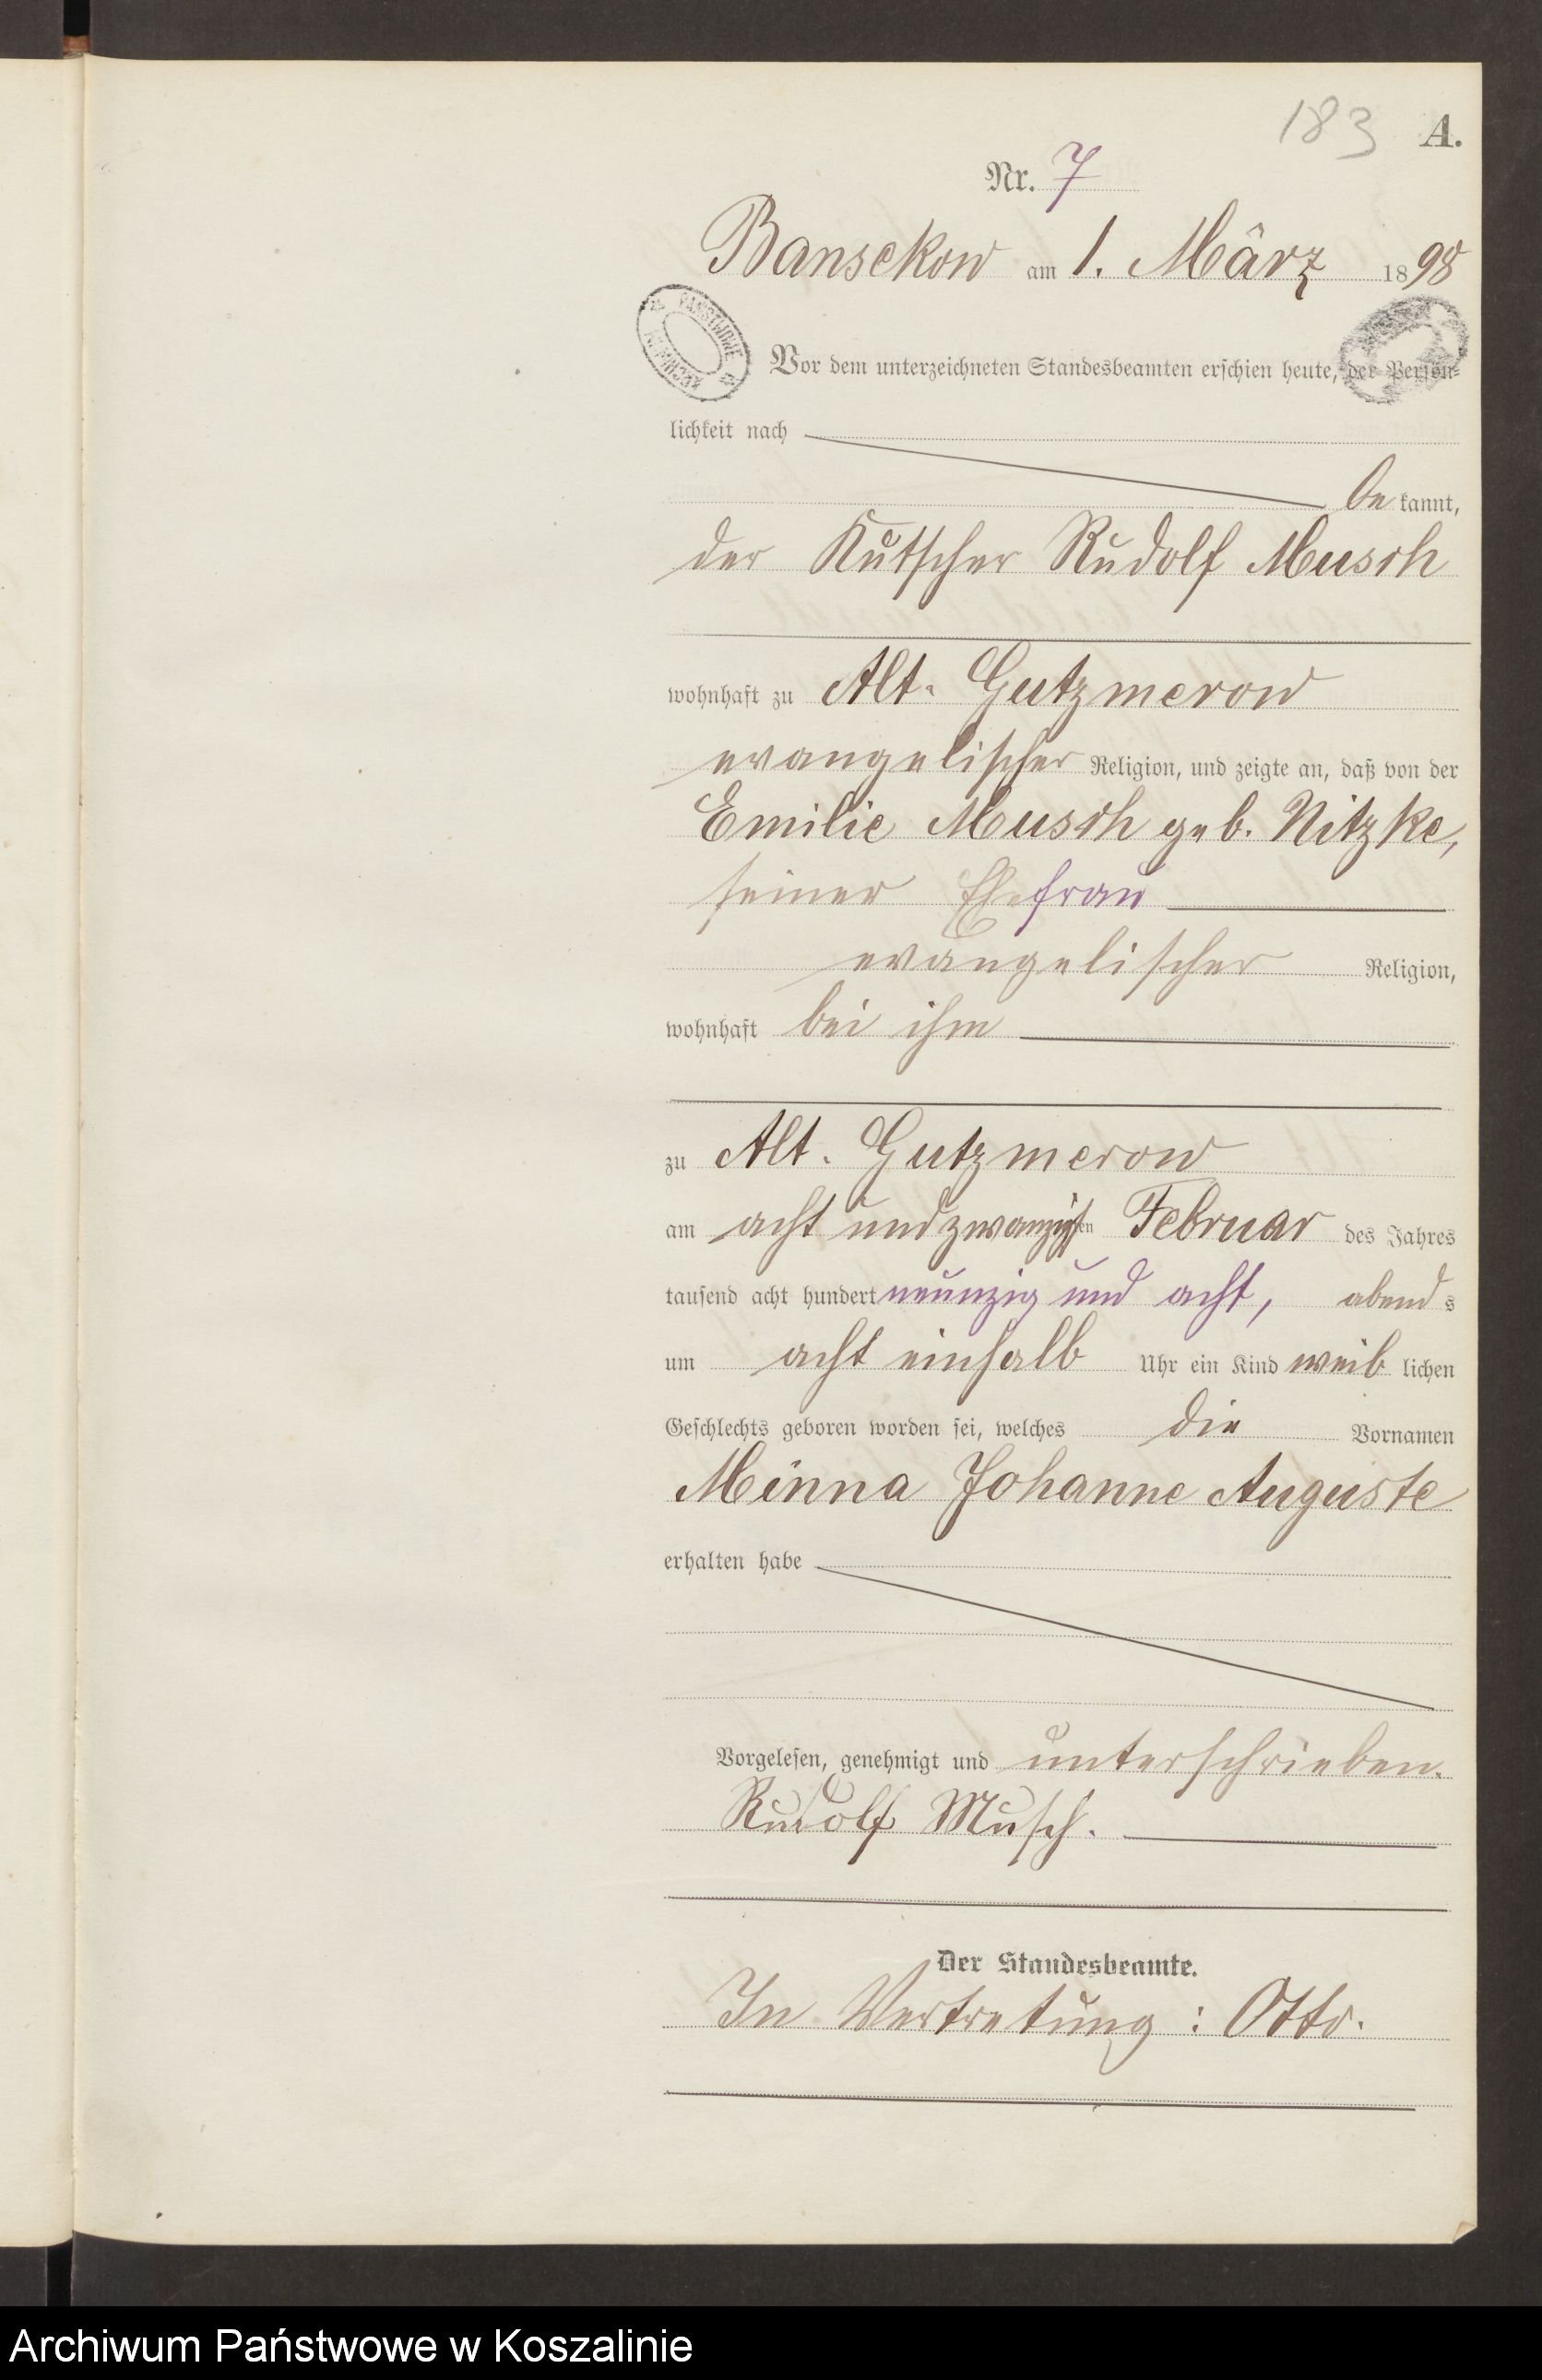 183 A.
Nr. 7
Bansekow am 1. März 1898
ARCHIWUM PAŃSTWOWE
Vor dem unterzeichneten Standesbeamten erschien heute, der Persön-
lichkeit nach
be kannt,
der Kutscher Rudolf Musch
wohnhaft zu Alt-Gutzmerow
evangelischer Religion, und zeigte an, daß von der
Emilie Musch geb. Nitzke,
seiner Ehefrau
evangelischer Religion,
wohnhaft bei ihm
zu Alt-Gutzmerow
am acht und zwanzigsten Februar des Jahres
tausend acht hundert neunzig und acht, abend s
um acht einhalb Uhr ein Kind weib lichen
Geschlechts geboren worden sei, welches die Vornamen
Minna Johanne Auguste
erhalten habe
Vorgelesen, genehmigt und unterschrieben.
Rudolf Musch.
Der Standesbeamte.
In Vertretung: Otto.
Archiwum Państwowe w Koszalinie